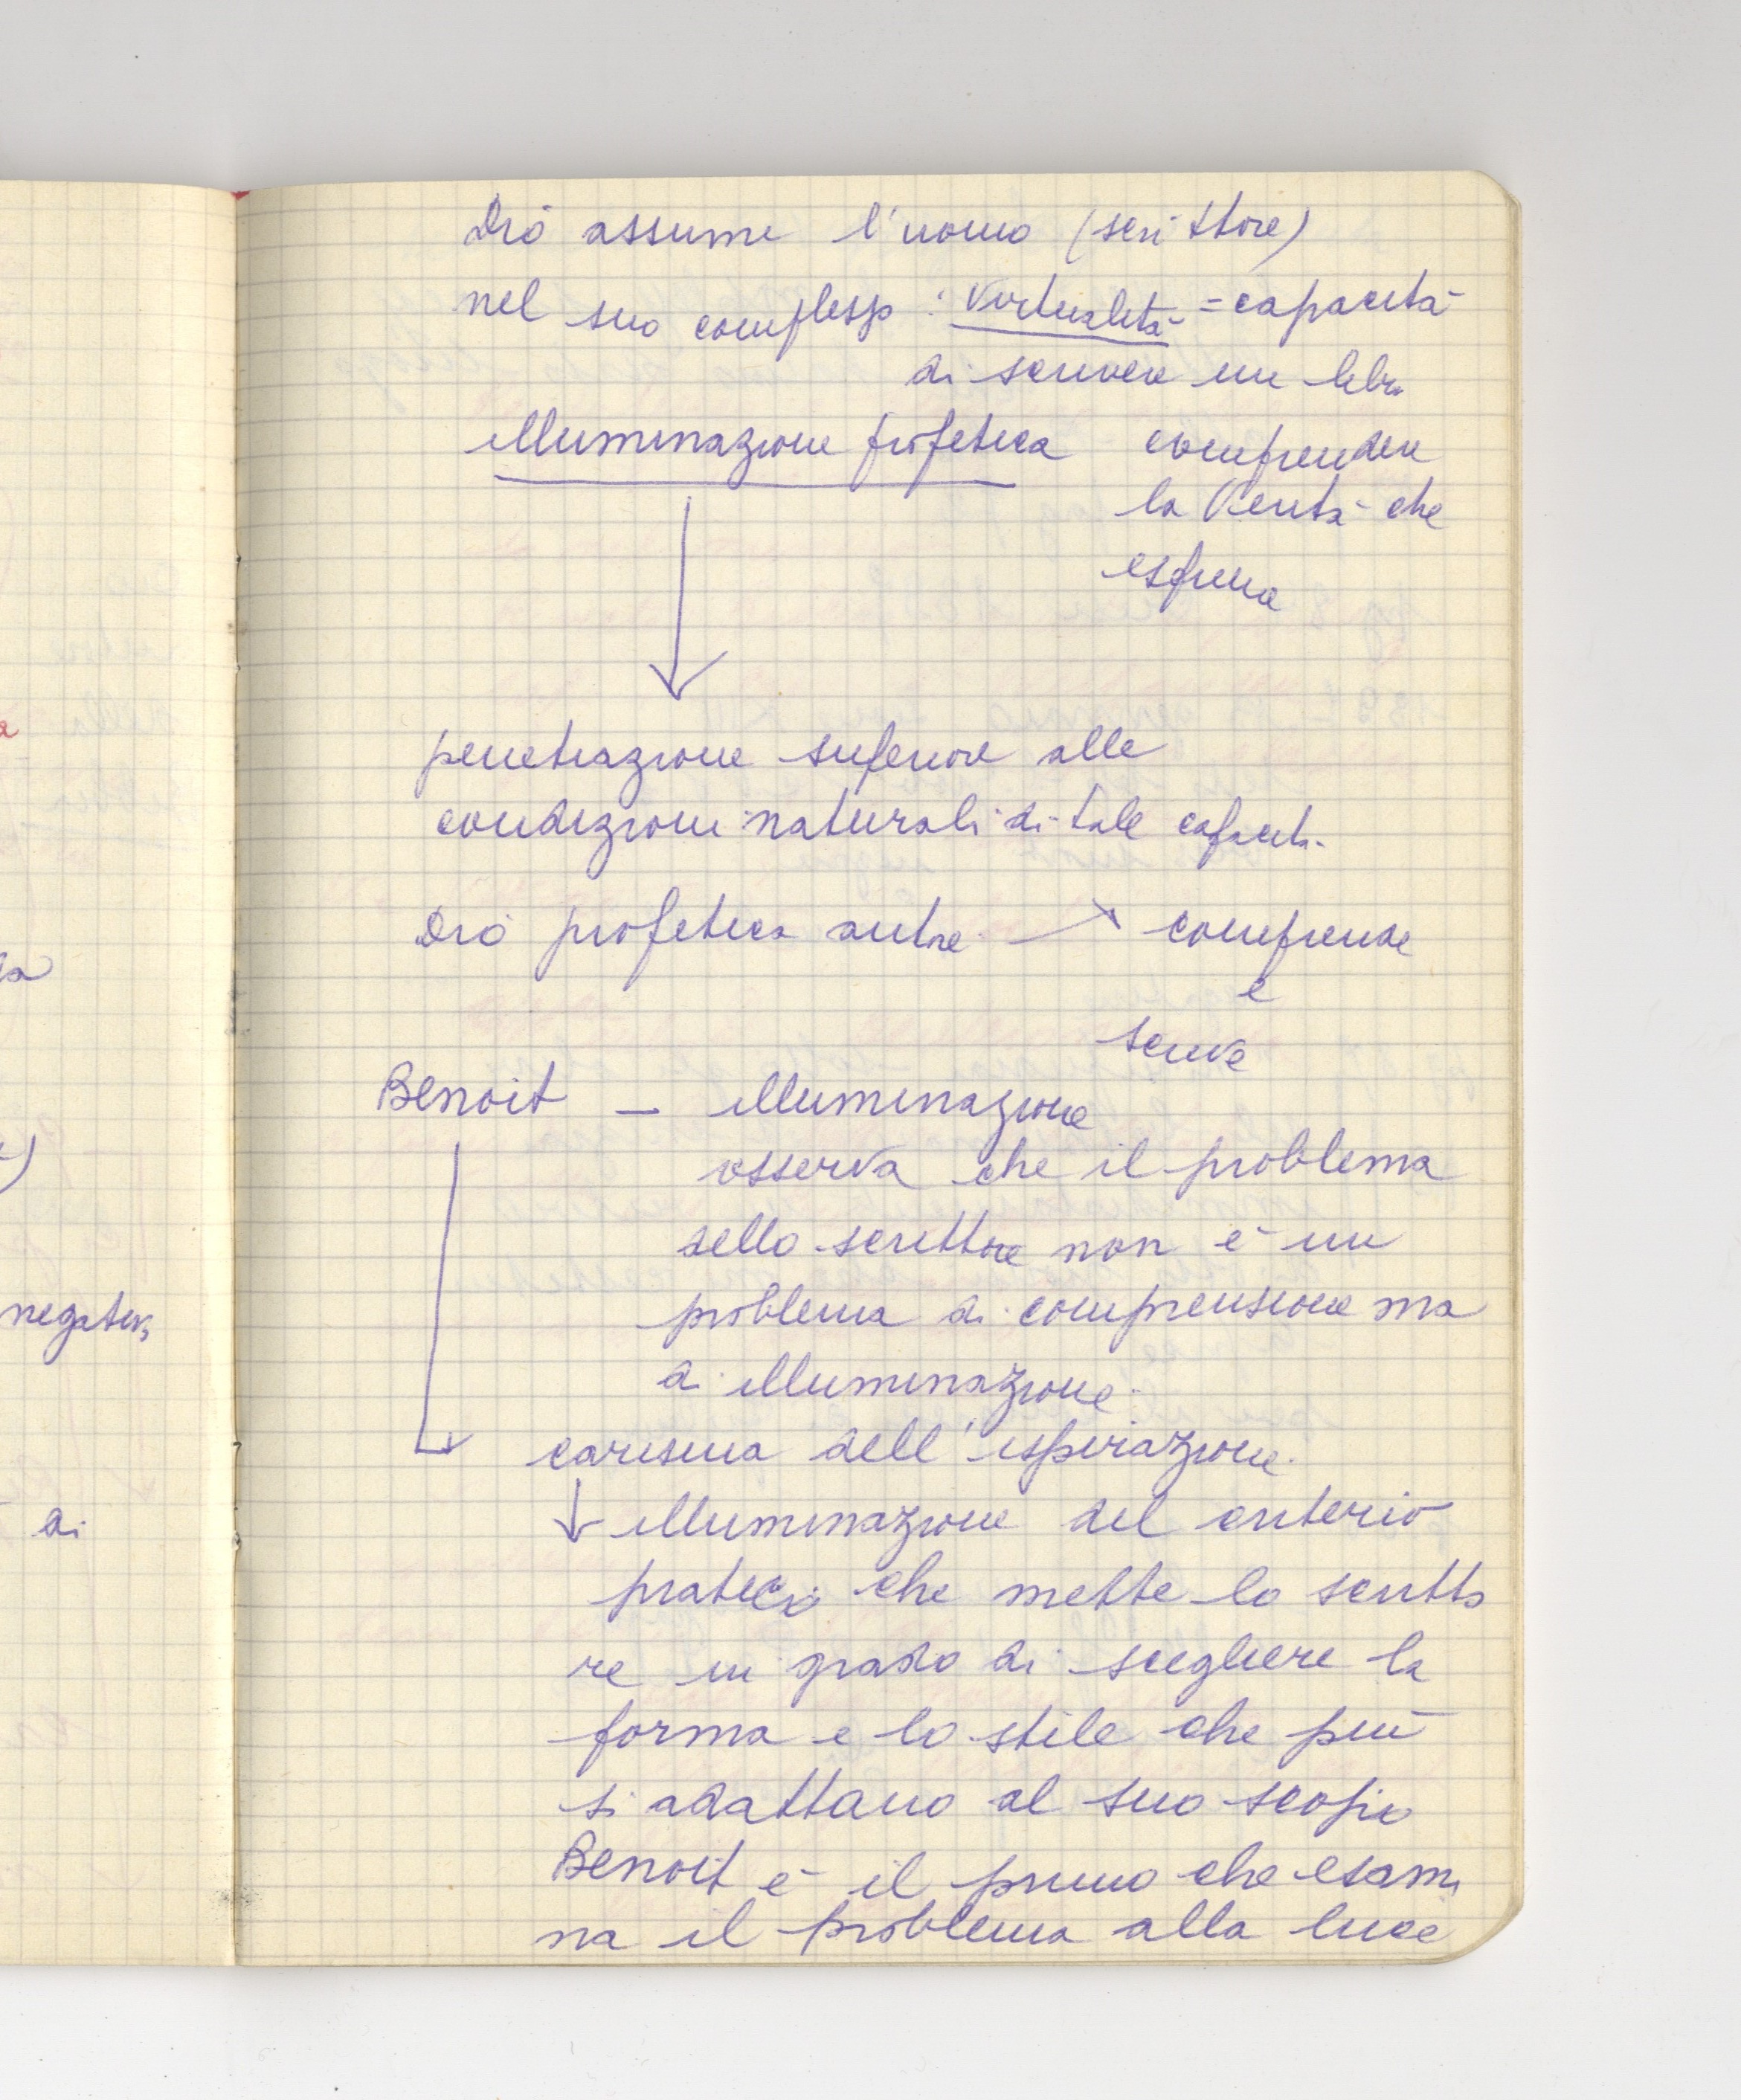 a
la
)
negativo
di
Dio assume l'uomo (scrittore)
nel suo complesso : Virtualità = capacità
di scrivere un libro
illuminazione profetica comprendere
la Verità che
esprime
penetrazione superiore alle
condizioni naturali di tale capacità
Dio profetica autore comprende
e
scrive
Benoit – illuminazione
osserva che il problema
dello scrittore non è un
problema di comprensione ma
di illuminazione.
carisma dell'ispirazione.
illuminazione del criterio
pratico che mette lo scritto
re in grado di scegliere la
forma e lo stile che più
si adattano al suo scopo
Benoit è il primo che esami
na il problema alla luce